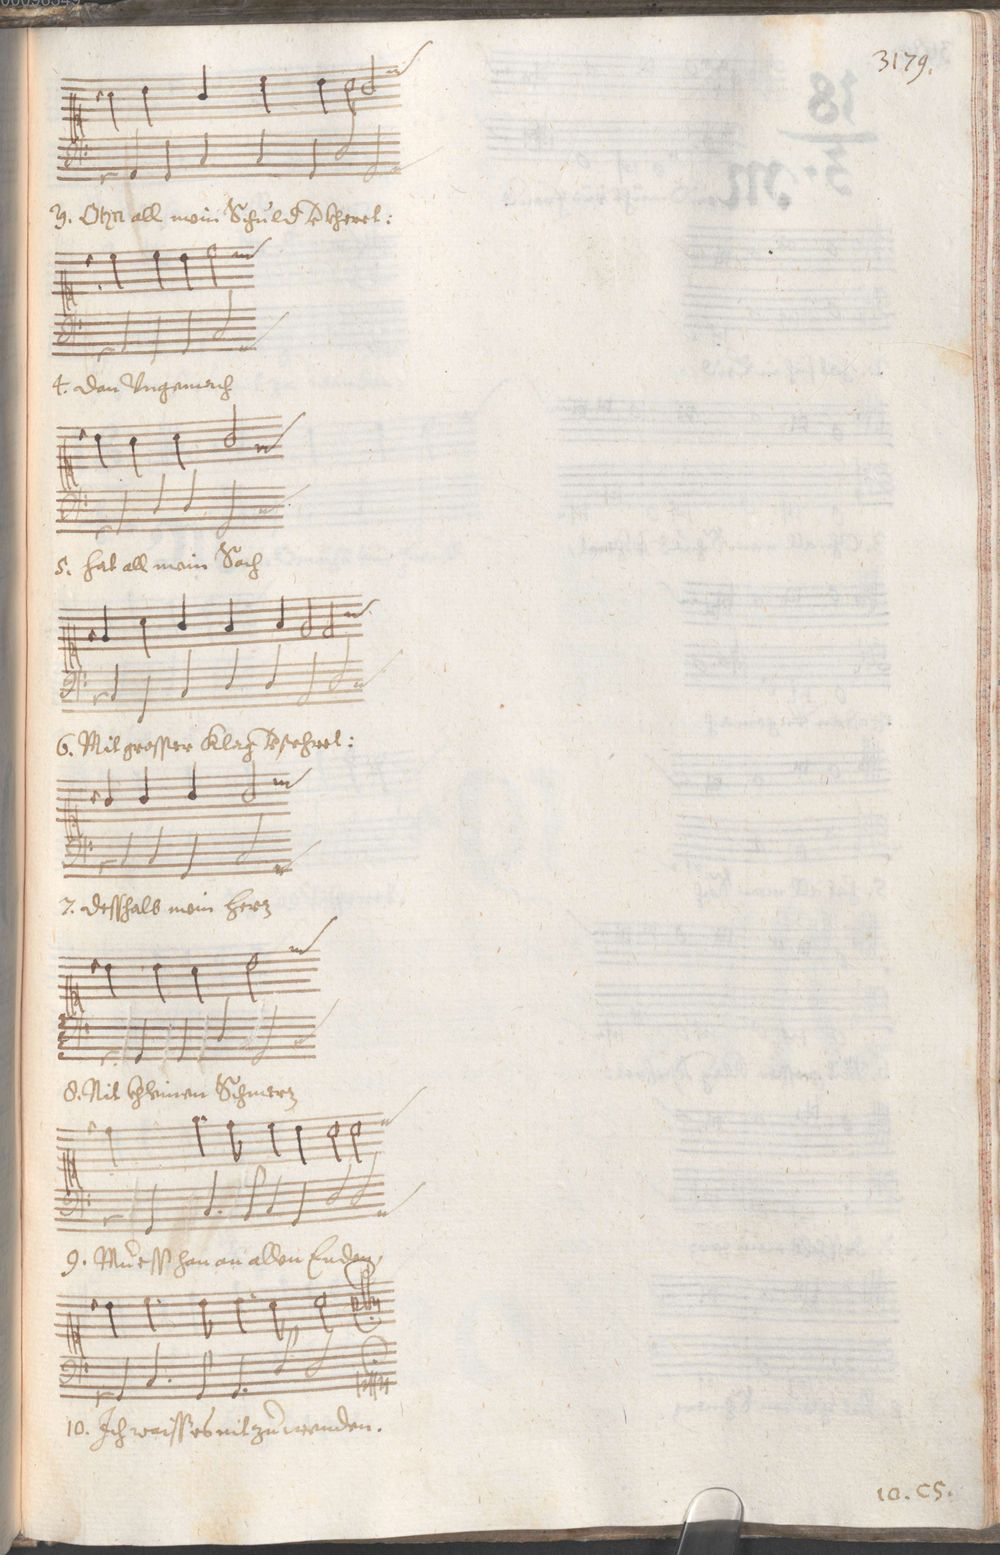 3179.
3. Ohn all mein Schuld
4. dan Ungemach
5. hat all mein Sach
6. Mit grosser Klag
7. desshalb mein hertz
8. Nit khleinen Schmertz
9. Muess han an allen Enden,
10. Ich waiss es nit zu wenden.
10. C5.